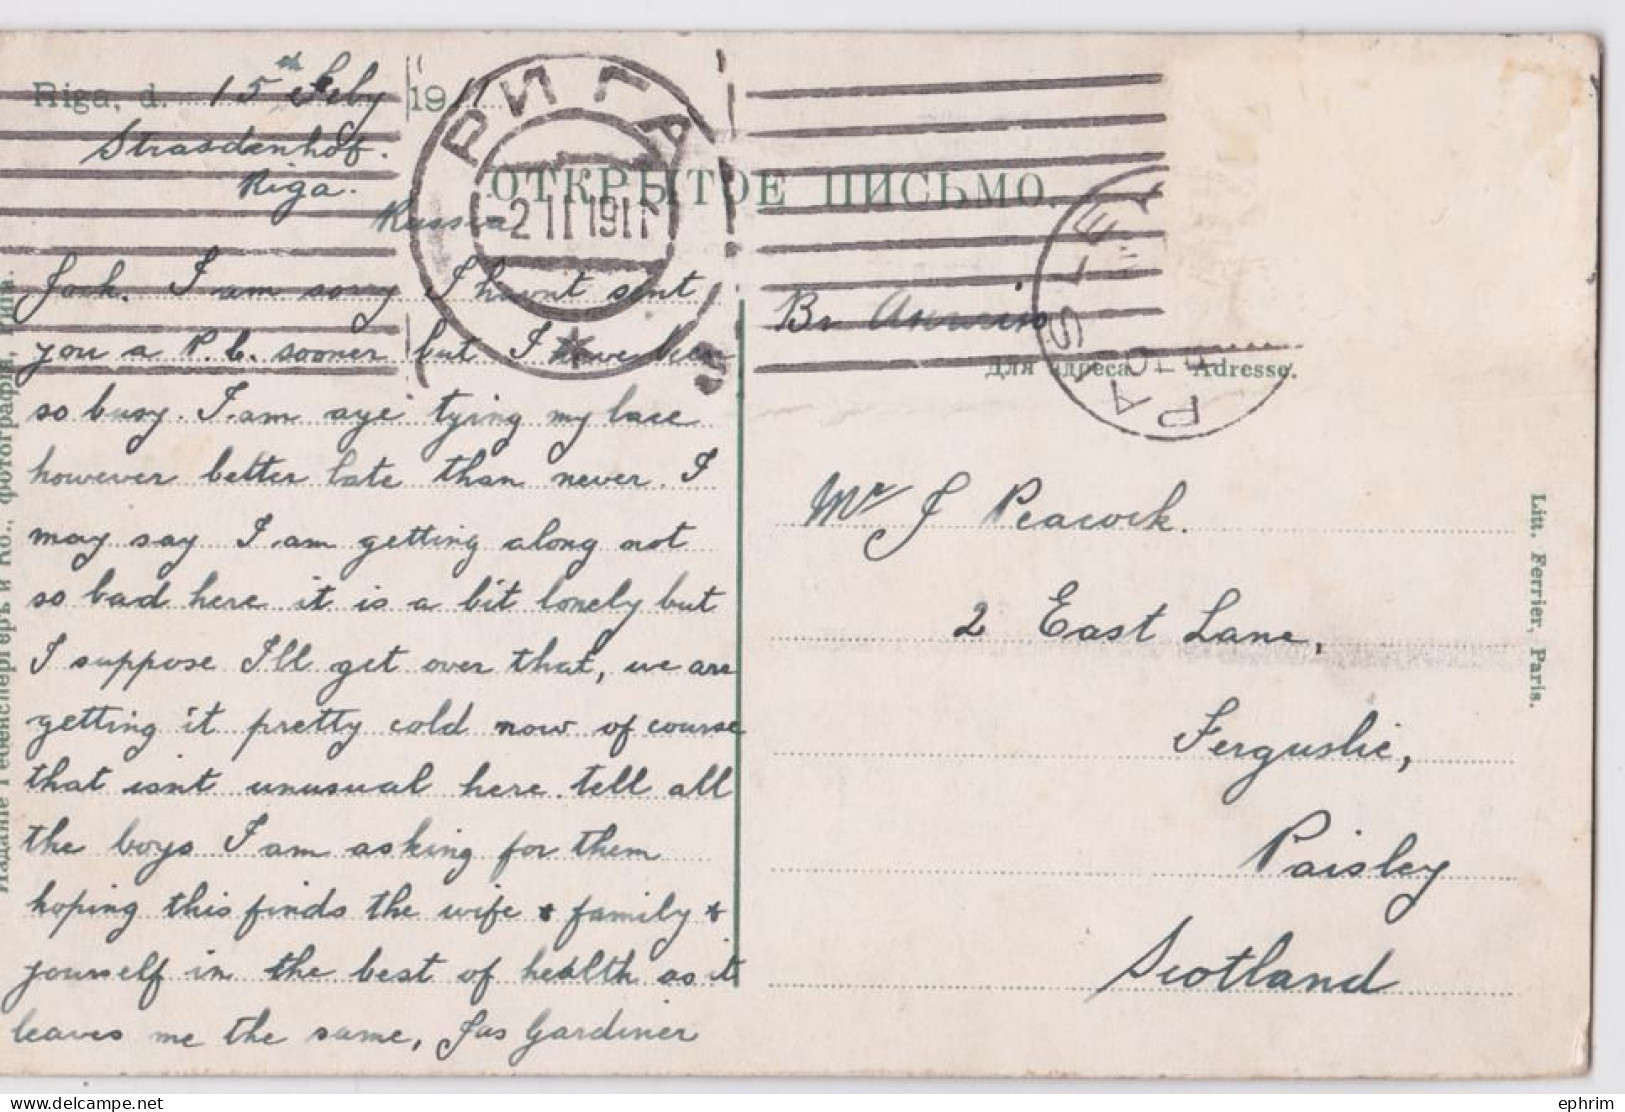 Riga, d. 15th Feby 191
Strasdenhof.
Riga.
Russia
РИГА
-2 II 1911
ОТКРЫТОЕ ПИСЬМО.
PAISLEY
Для адреса — Adresse.
Jock. I am sorry I havnt sent
you a P.C. sooner but I have been
so busy. I am aye tying my lace
however better late than never. I
may say I am getting along not
so bad here it is a bit lonely but
I suppose I'll get over that, we are
getting it pretty cold now of course
that isnt unusual here. tell all
the boys I am asking for them
hoping this finds the wife & family &
yourself in the best of health as it
leaves me the same, Jas Gardiner
Mr J Peacock.
2 East Lane,
Ferguslie,
Paisley
Scotland
Litt. Ferrier, Paris.
Изданіе Гебенспергеръ и Ко., фотографія, Рига.
ephrim